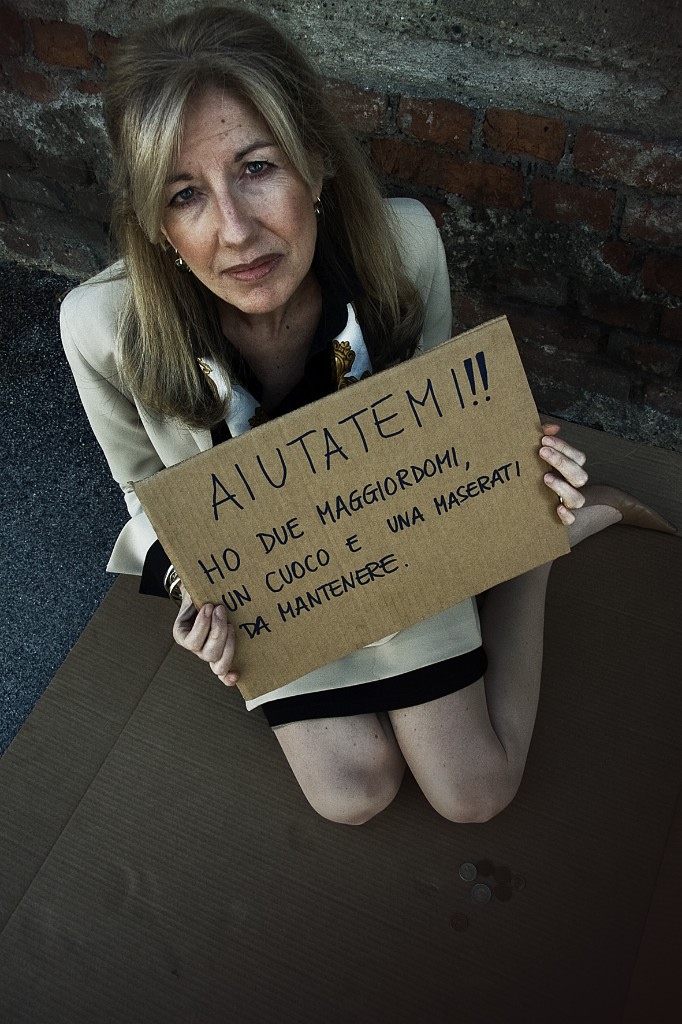 AIUTATEMI!!
HO DUE MAGGIORDOMI,
UN CUOCO E UNA MASERATI
DA MANTENERE.